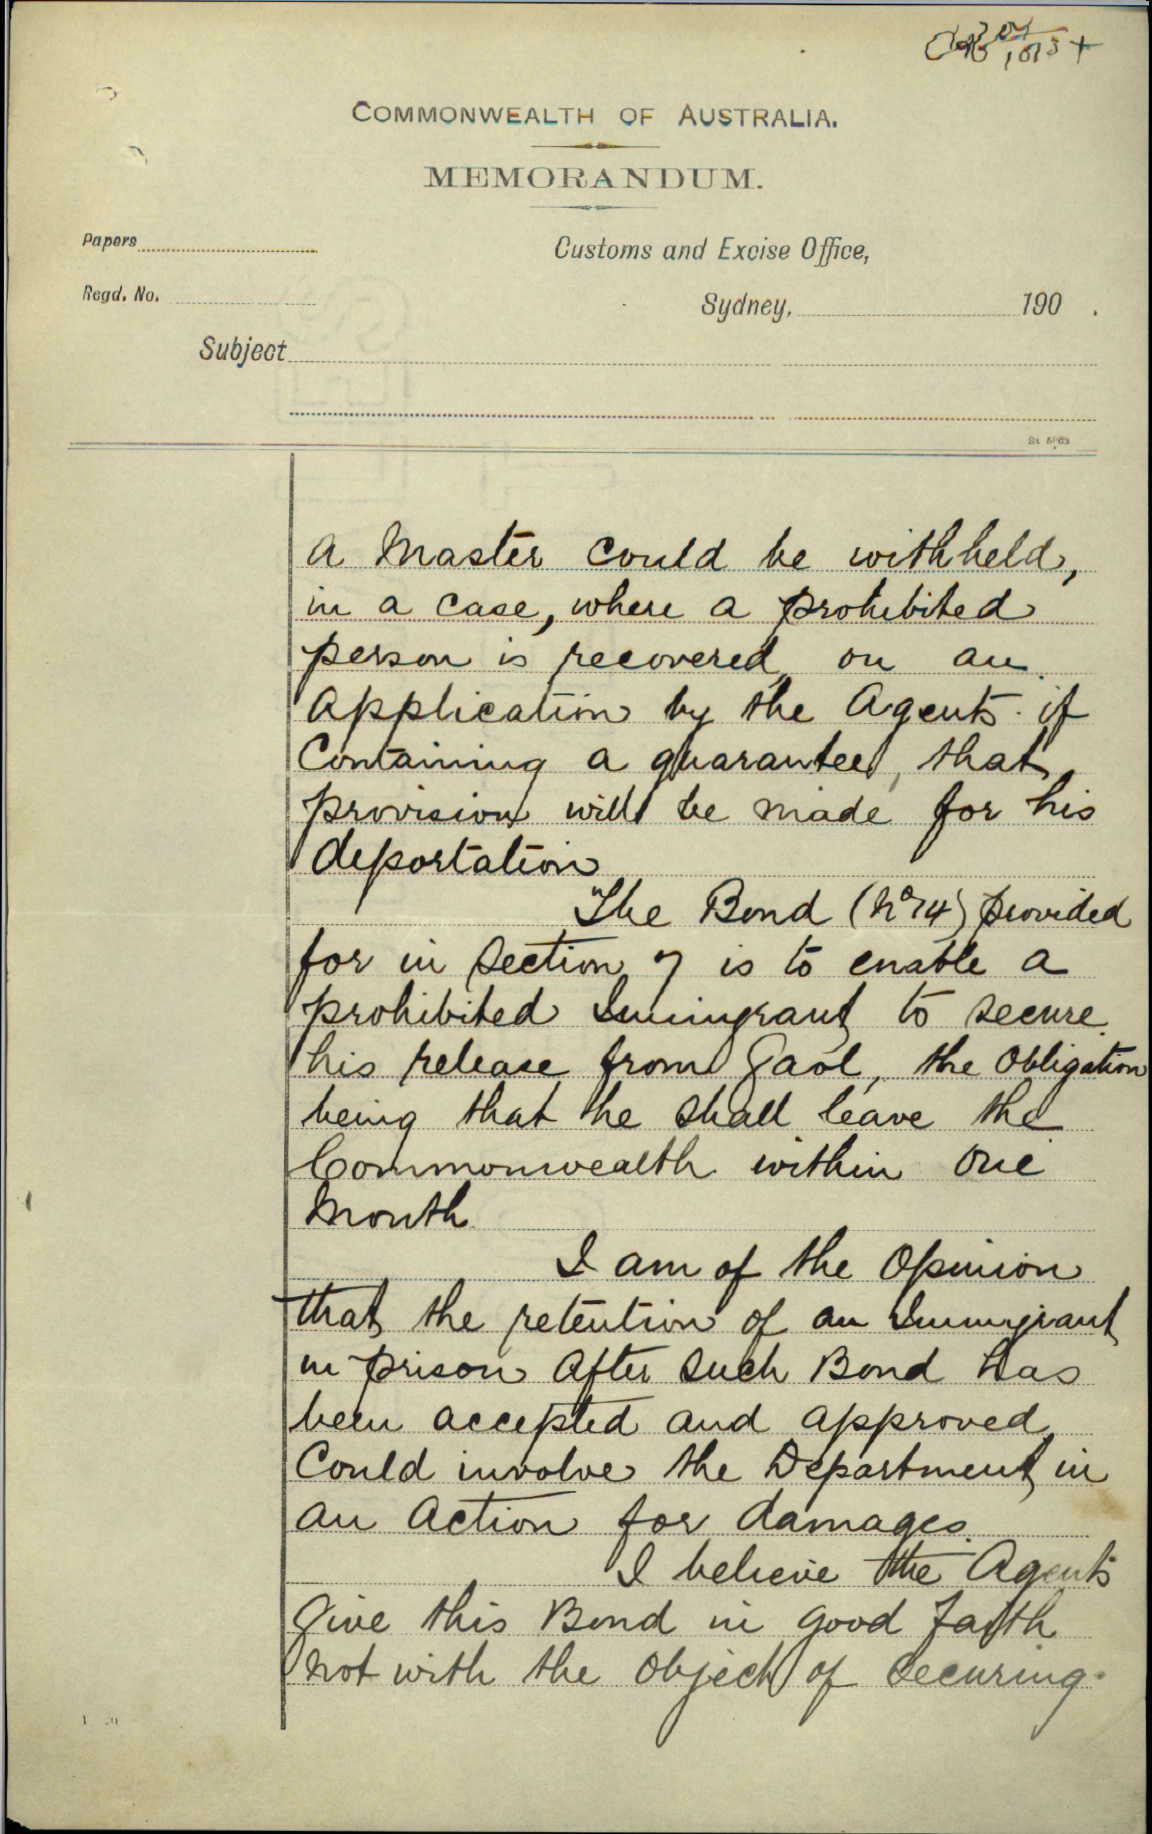 COMMONWEALTH OF AUSTRALIA.
MEMORANDUM.
Papers
Customs and Excise Office,
Regd. No.
Sydney, 190 .
Subject
a Master could be withheld,
in a case, where a prohibited
person is recovered, on an
application by the Agents if
Containing a guarantee, that
provision will be made for his
deportation
The Bond (No 14) provided
for in Section 7 is to enable a
prohibited Immigrant to secure
his release from Gaol, the Obligation
being that he shall leave the
Commonwealth within One
Month.
I am of the Opinion
that the retention of an Immigrant
in prison after such Bond has
been accepted and approved
Could involve the Department in
an Action for damages.
I believe the Agents
Give this Bond in Good Faith
not with the Object of Securing